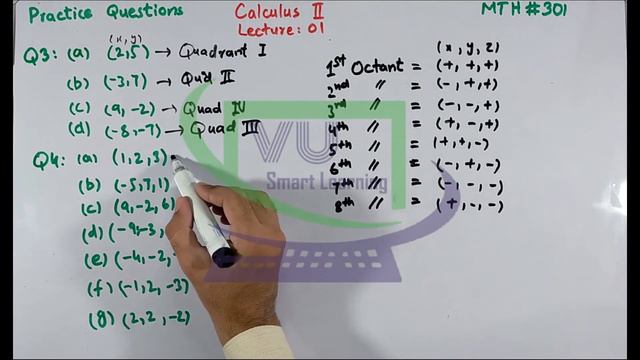 Practice Questions Calculus II MTH #301
Lecture: 01
(x, y)
Q3: (a) (2,5) → Quadrant I
(b) (-3,7) → Quad II
(c) (9, -2) → Quad IV
(d) (-8, -7) → Quad III
Q4: (a) (1, 2, 3)
(b) (-5, 7, 1)
(c) (9, -2, 6)
(d) (-9, -3,
(e) (-4, -2,
(f) (-1, 2, -3)
(g) (2, 2, -2)
(x, y, z)
1st Octant = (+, +, +)
2nd " = (-, +, +)
3rd " = (-, -, +)
4th " = (+, -, +)
5th " = (+, +, -)
6th " = (-, +, -)
7th " = (-, -, -)
8th " = (+, -, -)
VU
Smart Learning